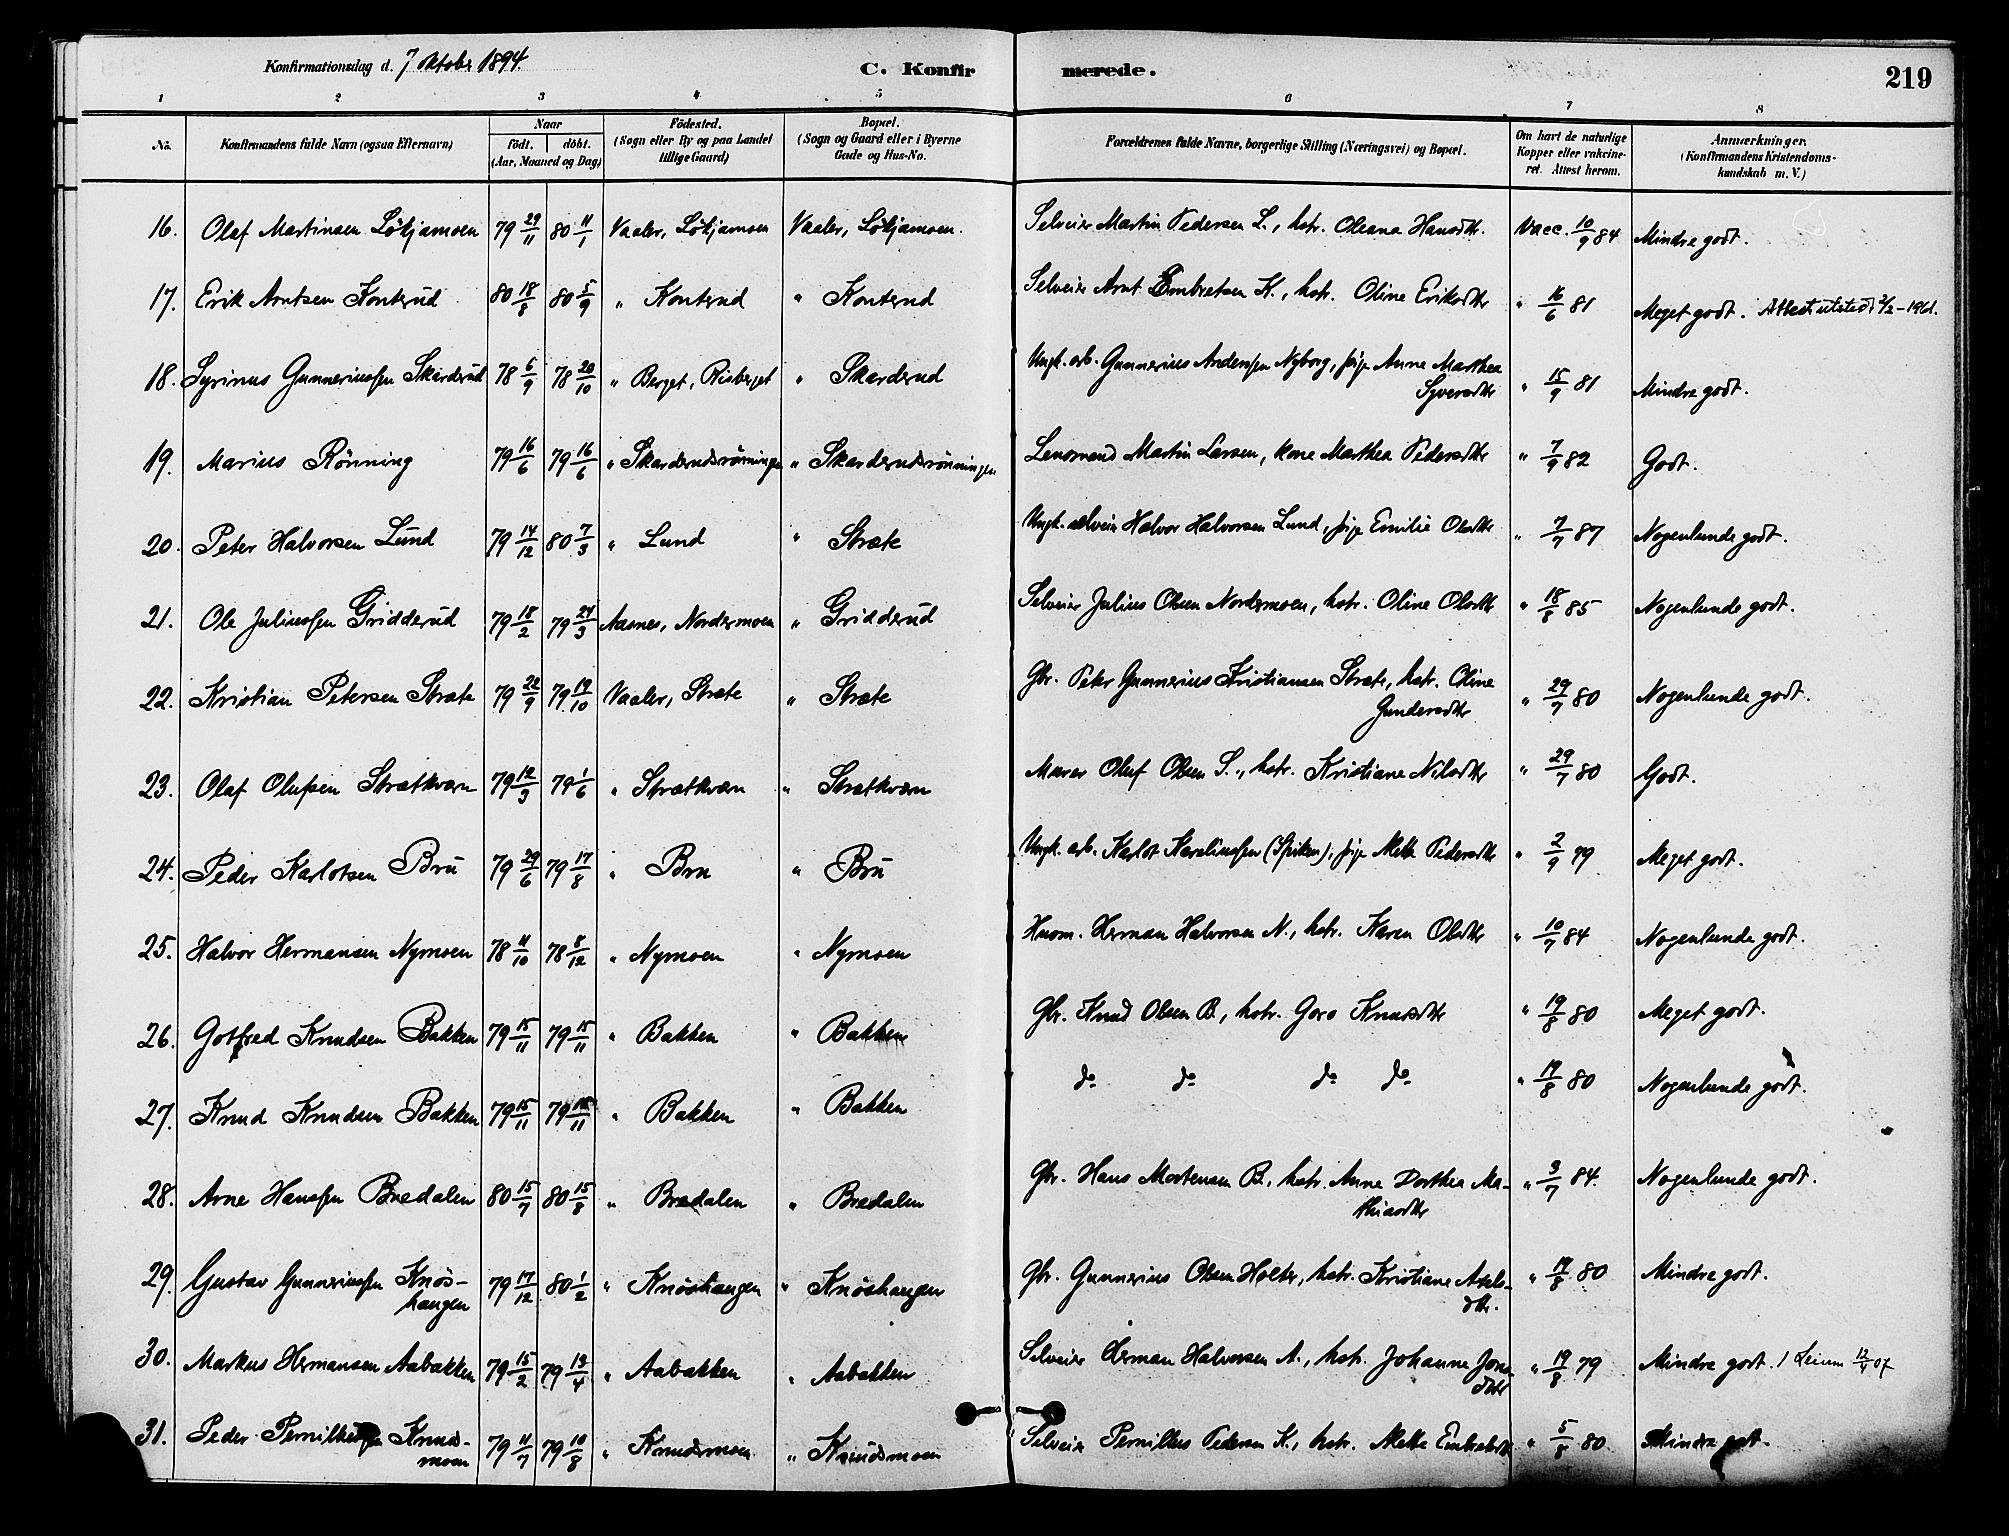 Konfirmationsdag d. 7 Oktober 1894. C. Konfir merede. 219
1 2 3 4 5 6 7 8
No. Konfirmandens fulde Navn (ogsaa Efternavn) Naar födt. döbt. (Aar, Maaned og Dag) Födested. (Sogn eller By og paa Landet tillige Gaard) Bopæl. (Sogn og Gaard eller i Byerne Gade og Hus-No. Forældrenes fulde Navne, borgerlige Stilling (Næringsvei) og Bopæl. Om havt de naturlige Kopper eller vakcineret. Attest herom. Anmærkninger. (Konfirmandens Kristendomskundskab m. V.)
16. Olaf Martinsen Löbjamoen 79 29/11 80 11/1 Vaaler, Löbjamoen Vaaler, Löbjamoen. Selveier Martin Pedersen L., hstr. Oleana Hansdtr. Vacc. 10/9 84 Mindre godt.
17. Erik Arntsen Konterud 80 18/8 80 5/9 " Konterud " Konterud Selveier Arnt Embretsen K., hstr. Oline Eriksdtr " 16/6 81 Meget godt. Attest utstedt 2/2-1961.
18. Syrinus Gunneriussen Skarderud 78 6/9 78 20/10 " Berget, Risberget " Skarderud Ungk. arb. Gunnerius Anderssen Nyborg, pige Anne Marthea
Syversdtr " 15/9 81 Mindre godt.
19. Marius Rönning 79 16/6 79 16/6 " Skarderudsrönningen " Skarderudsrönningen Lensmand Martin Larsen, kone Marthea Pedersdtr " 7/9 82 Godt.
20. Peter Halvorsen Lund 79 14/12 80 7/3 " Lund " Stræte Ungk. selveier Halvor Halvorsen Lund, pige Emilie Olsdtr " 7/7 87 Nogenlunde godt.
21. Ole Juliussen Gridderud 79 18/2 79 24/3 Aasnes, Nordermoen " Gridderud Selveier Julius Olsen Nordermoen, hstr. Oline Olsdtr " 18/8 85 Nogenlunde godt.
22. Kristian Petersen Stræte 79 22/9 79 19/10 Vaaler, Stræte " Stræte Gbr. Peter Gunnerius Kristiansen Stræte, hstr. Oline
Gundersdtr " 29/7 80 Nogenlunde godt.
23. Olaf Olufsen Strætkværn 79 12/3 79 1/6 " Strætkværn " Strætkværn Murer Oluf Olsen S., hstr. Kristiane Nilsdtr " 29/7 80 Godt.
24. Peder Karlotsen Bru 79 29/6 79 17/8 " Bru " Bru Ungk. arb. Karlot Kareliussen (Spiken), pige Mette Pedersdtr " 2/9 79 Meget godt.
25. Halvor Hermansen Nymoen 78 11/10 78 8/12 " Nymoen " Nymoen Husm. Herman Halvorsen N., hstr. Karen Olsdtr " 10/7 84 Nogenlunde godt.
26. Gotfred Knudsen Bakken 79 15/11 79 15/11 " Bakken " Bakken Gbr. Knud Olsen B., hstr. Goro Knudsdtr " 19/8 80 Meget godt.
27. Knud Knudsen Bakken 79 15/11 79 15/11 " Bakken " Bakken do do do do " 19/8 80 Nogenlunde godt.
28. Arne Hanssen Bredalen 80 15/7 80 15/8 " Bredalen " Bredalen Gbr. Hans Mortensen B., hstr. Anne Dorthea Ma-
thiasdtr " 3/7 84. Nogenlunde godt.
29. Gustav Gunneriussen Knös-
haugen 79 17/12 80 1/2 " Knöshaugen " Knöshaugen Gbr. Gunnerius Olsen Holter, hstr. Kristiane Axels-
dtr. " 19/8 80 Mindre godt.
30. Markus Hermansen Aabakken 79 15/2 79 13/4 " Aabakken " Aabakken Selveier Herman Halvorsen A., hstr. Johanne Jons
dtr " 19/8 79 Mindre godt.
31. Peder Pernilliussen Knuds-
moen 79 11/7 79 10/8 " Knudsmoen " Knudsmoen Selveier Pernillus Pedersen K., hstr. Mette Embretsdtr " 5/8 80 Mindre godt.